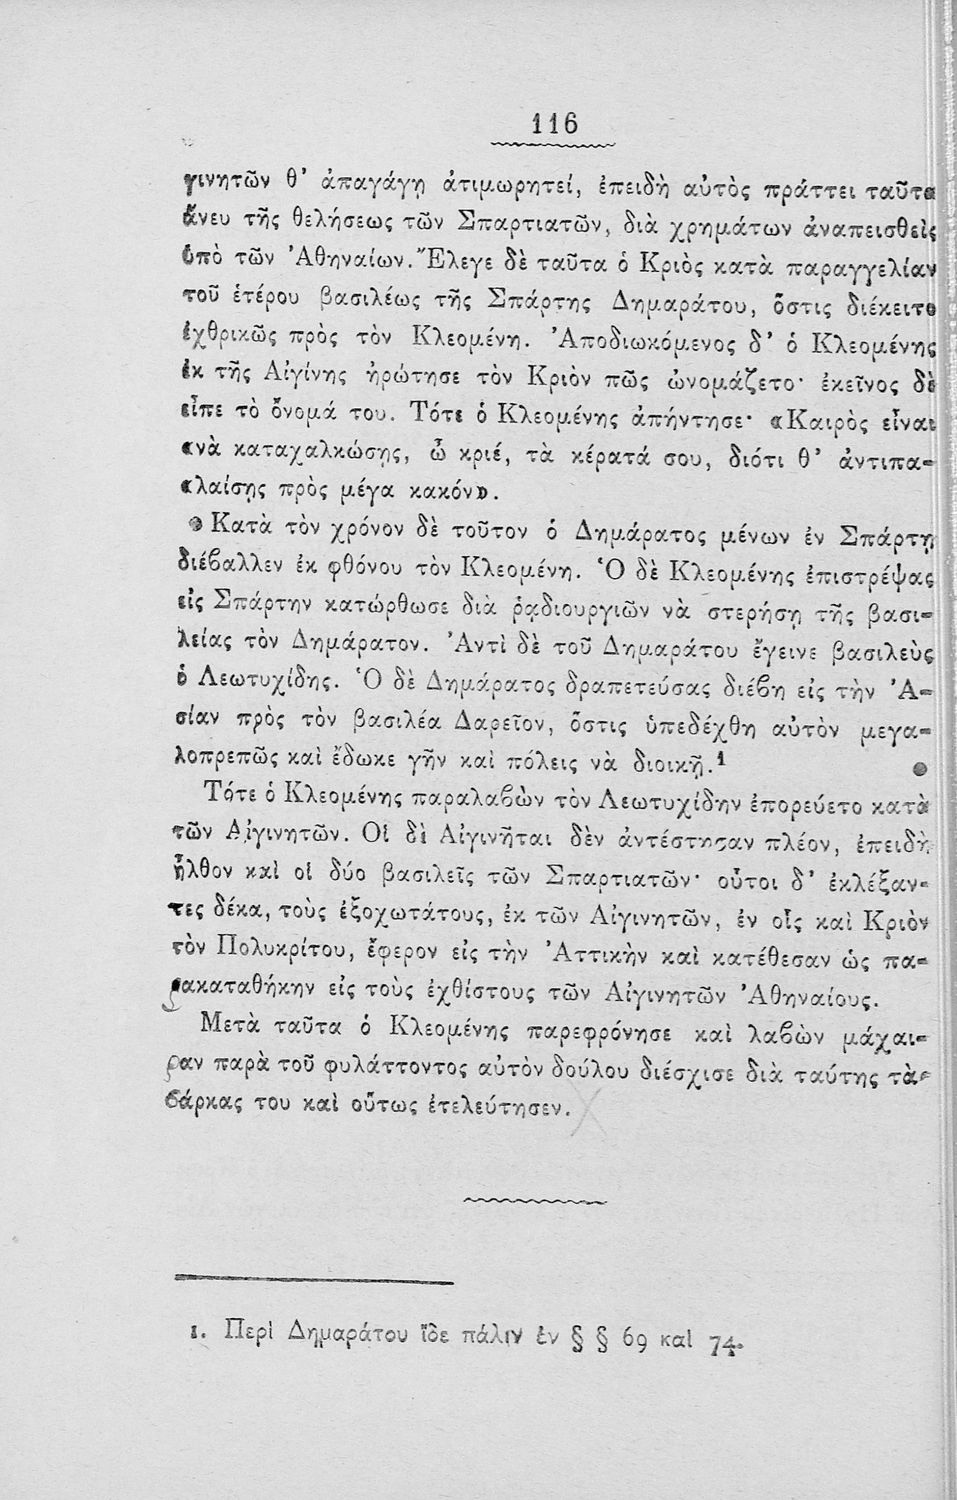 116
γινητῶν θ' ἀπαγάγῃ ἀτιμωρητεί, ἐπειδὴ αὐτὸς πράττει ταῦτα
ἄνευ τῆς θελήσεως τῶν Σπαρτιατῶν, διὰ χρημάτων ἀναπεισθεὶς
ὑπὸ τῶν Ἀθηναίων. Ἔλεγε δὲ ταῦτα ὁ Κριὸς κατὰ παραγγελίαν
τοῦ ἑτέρου βασιλέως τῆς Σπάρτης Δημαράτου, ὅστις διέκειτο
ἐχθρικῶς πρὸς τὸν Κλεομένη. Ἀποδιωκόμενος δ' ὁ Κλεομένης
ἐκ τῆς Αἰγίνης ἠρώτησε τὸν Κριὸν πῶς ὠνομάζετο· ἐκεῖνος δὲ
εἶπε τὸ ὄνομά του. Τότε ὁ Κλεομένης ἀπήντησε· «Καιρὸς εἶναι
«νὰ καταχαλκώσῃς, ὦ κριέ, τὰ κέρατά σου, διότι θ' ἀντιπα-
«λαίσῃς πρὸς μέγα κακόν».
Κατὰ τὸν χρόνον δὲ τοῦτον ὁ Δημάρατος μένων ἐν Σπάρτῃ
διέβαλλεν ἐκ φθόνου τὸν Κλεομένη. Ὁ δὲ Κλεομένης ἐπιστρέψας
εἰς Σπάρτην κατώρθωσε διὰ ῥᾳδιουργιῶν νὰ στερήσῃ τῆς βασι-
λείας τὸν Δημάρατον. Ἀντὶ δὲ τοῦ Δημαράτου ἔγεινε βασιλεὺς
ὁ Λεωτυχίδης. Ὁ δὲ Δημάρατος δραπετεύσας διέβη εἰς τὴν Ἀ-
σίαν πρὸς τὸν βασιλέα Δαρεῖον, ὅστις ὑπεδέχθη αὐτὸν μεγα-
λοπρεπῶς καὶ ἔδωκε γῆν καὶ πόλεις νὰ διοικῇ.¹
Τότε ὁ Κλεομένης παραλαβὼν τὸν Λεωτυχίδην ἐπορεύετο κατὰ
τῶν Αἰγινητῶν. Οἱ δὲ Αἰγινῆται δὲν ἀντέστησαν πλέον, ἐπειδὴ
ἦλθον καὶ οἱ δύο βασιλεῖς τῶν Σπαρτιατῶν· οὗτοι δ' ἐκλέξαν-
τες δέκα, τοὺς ἐξοχωτάτους, ἐκ τῶν Αἰγινητῶν, ἐν οἷς καὶ Κριὸν
τὸν Πολυκρίτου, ἔφερον εἰς τὴν Ἀττικὴν καὶ κατέθεσαν ὡς πα-
ρακαταθήκην εἰς τοὺς ἐχθίστους τῶν Αἰγινητῶν Ἀθηναίους.
Μετὰ ταῦτα ὁ Κλεομένης παρεφρόνησε καὶ λαβὼν μάχαι-
ραν παρὰ τοῦ φυλάττοντος αὐτὸν δούλου διέσχισε διὰ ταύτης τὰς
σάρκας του καὶ οὕτως ἐτελεύτησεν.
1. Περὶ Δημαράτου ἴδε πάλιν ἐν § § 69 καὶ 74.